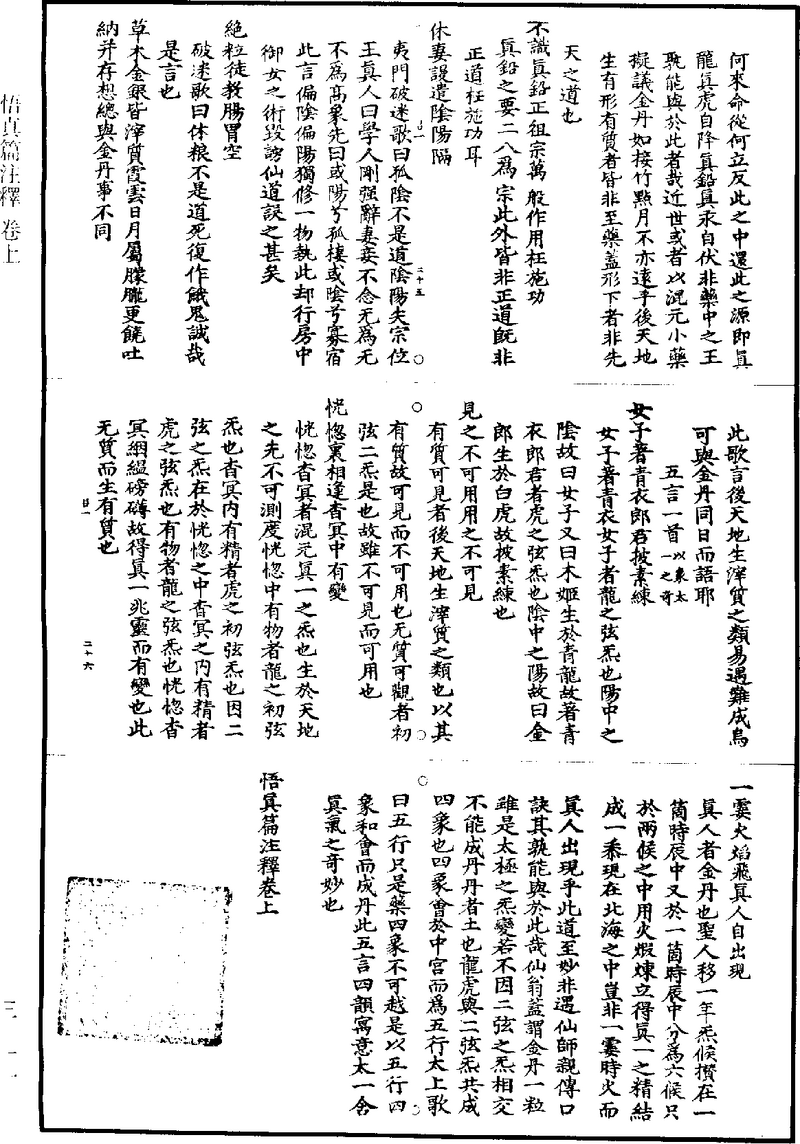 何來命從何立反此之中還此之源即眞
龍眞虎自降眞鉛眞汞自伏非藥中之王
孰能與於此者哉近世或者以混元小藥
擬議金丹如接竹點月不亦遠乎後天地
生有形有質者皆非至藥蓋形下者非先
天之道也
不識眞鉛正祖宗萬般作用枉施功
眞鉛之要二八爲宗此外皆非正道既非
正道枉施功耳
休妻謾遣陰陽隔
夷門破迷歌曰孤陰不是道陰陽失宗位
王眞人曰學人剛强辭妻妾不念无爲无
不爲高象先曰或陽兮孤棲或陰兮寡宿
此言偏陰偏陽獨修一物執此却行房中
御女之術毀謗仙道誤之甚矣
絶粒徒教腸胃空
破迷歌曰休粮不是道死復作餓鬼誠哉
是言也
草木金銀皆滓質霞雲日月屬朦朧更饒吐
納并存想總與金丹事不同
此歌言後天地生滓質之類易遇難成烏
可與金丹同日而語耶
五言一首以象太一之奇
女子著青衣郎君披素練
女子著青衣女子者龍之弦炁也陽中之
陰故曰女子又曰木姬生於青龍故著青
衣郎君者虎之弦炁也陰中之陽故曰金
郎生於白虎故披素練也
見之不可用用之不可見
有質可見者後天地生滓質之類也以其
有質故可見而不可用也无質可觀者初
弦二炁是也故雖不可見而可用也
恍惚裏相逢杳冥中有變
恍惚杳冥者混元眞一之炁也生於天地
之先不可測度恍惚中有物者龍之初弦
炁也杳冥内有精者虎之初弦炁也因二
弦之炁在於恍惚之中杳冥之内有精者
虎之弦炁也有物者龍之弦炁也恍惚杳
冥絪縕磅礴故得眞一兆靈而有變也此
无質而生有質也
一霎火焰飛眞人自出現
眞人者金丹也聖人移一年炁候攢在一
箇時辰中又於一箇時辰中分爲六候只
於兩候之中用火煆煉立得眞一之精結
成一黍現在北海之中豈非一霎時火而
眞人出現乎此道至妙非遇仙師親傳口
訣其孰能與於此哉仙翁蓋謂金丹一粒
雖是太極之炁變若不因二弦之炁相交
不能成丹丹者土也龍虎與二弦炁共成
四象也四象會於中宮而爲五行太上歌
曰五行只是藥四象不可越是以五行四
象和會而成丹此五言四韻寓意太一含
眞氣之奇妙也
悟眞篇注釋卷上
悟真篇注釋 卷上
二十五
二十六